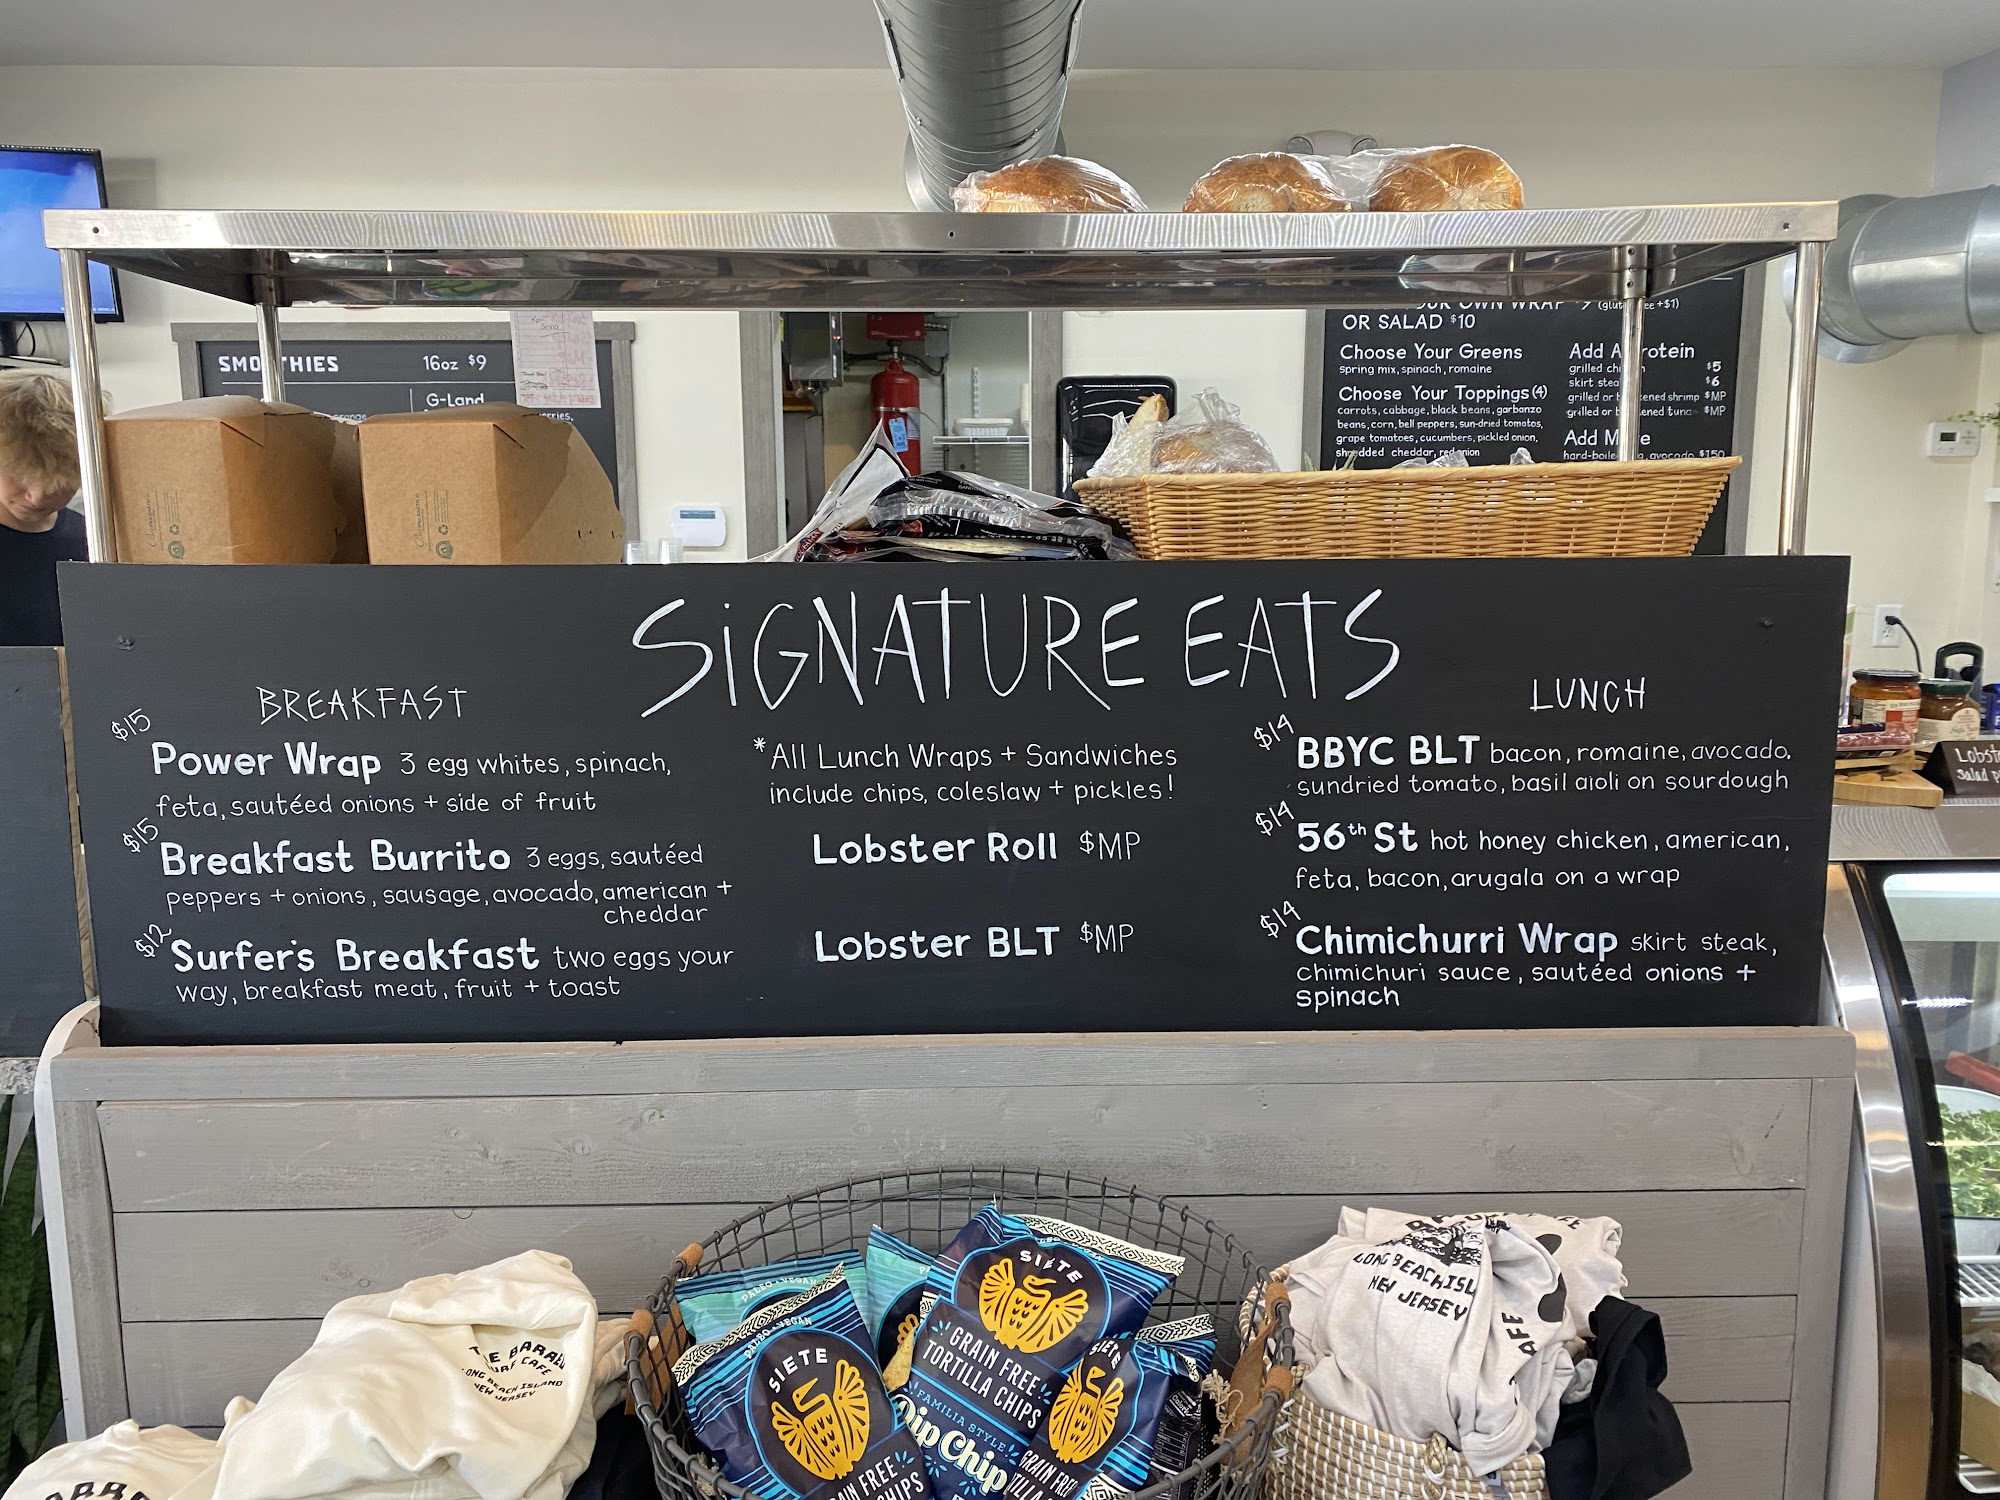 SMOOTHIES 16oz $9
G-Land
OUR OWN WRAP $9
OR SALAD $10
Choose Your Greens
spring mix, spinach, romaine
Choose Your Toppings (4)
carrots, cabbage, black beans, garbanzo
beans, corn, bell peppers, sun-dried tomatos,
grape tomatoes, cucumbers, pickled onion,
shredded cheddar, red onion
Add Protein
grilled chicken $5
skirt steak $6
grilled or blackened shrimp $MP
grilled or blackened tuna $MP
Add More
avocado $1.50
SiGNATURE EATS
BREAKFAST
$15
Power Wrap 3 egg whites, spinach,
feta, sautéed onions + side of fruit
$15
Breakfast Burrito 3 eggs, sautéed
peppers + onions, sausage, avocado, american +
cheddar
$12
Surfer's Breakfast two eggs your
way, breakfast meat, fruit + toast
*All Lunch Wraps + Sandwiches
include chips, coleslaw + pickles!
Lobster Roll $MP
Lobster BLT $MP
LUNCH
$14
BBYC BLT bacon, romaine, avocado,
sundried tomato, basil aioli on sourdough
$14
56th St hot honey chicken, american,
feta, bacon, arugala on a wrap
$14
Chimichurri Wrap skirt steak,
chimichuri sauce, sautéed onions +
spinach
PALEO • VEGAN
PALEO • VEGAN
SIETE
SIETE
GRAIN FREE
TORTILLA CHIPS
FAMILIA STYLE
Dip Chip
SIETE
GRAIN FREE
LONG BEACH ISLAND
NEW JERSEY
LONG BEACH ISL
NEW JERSEY